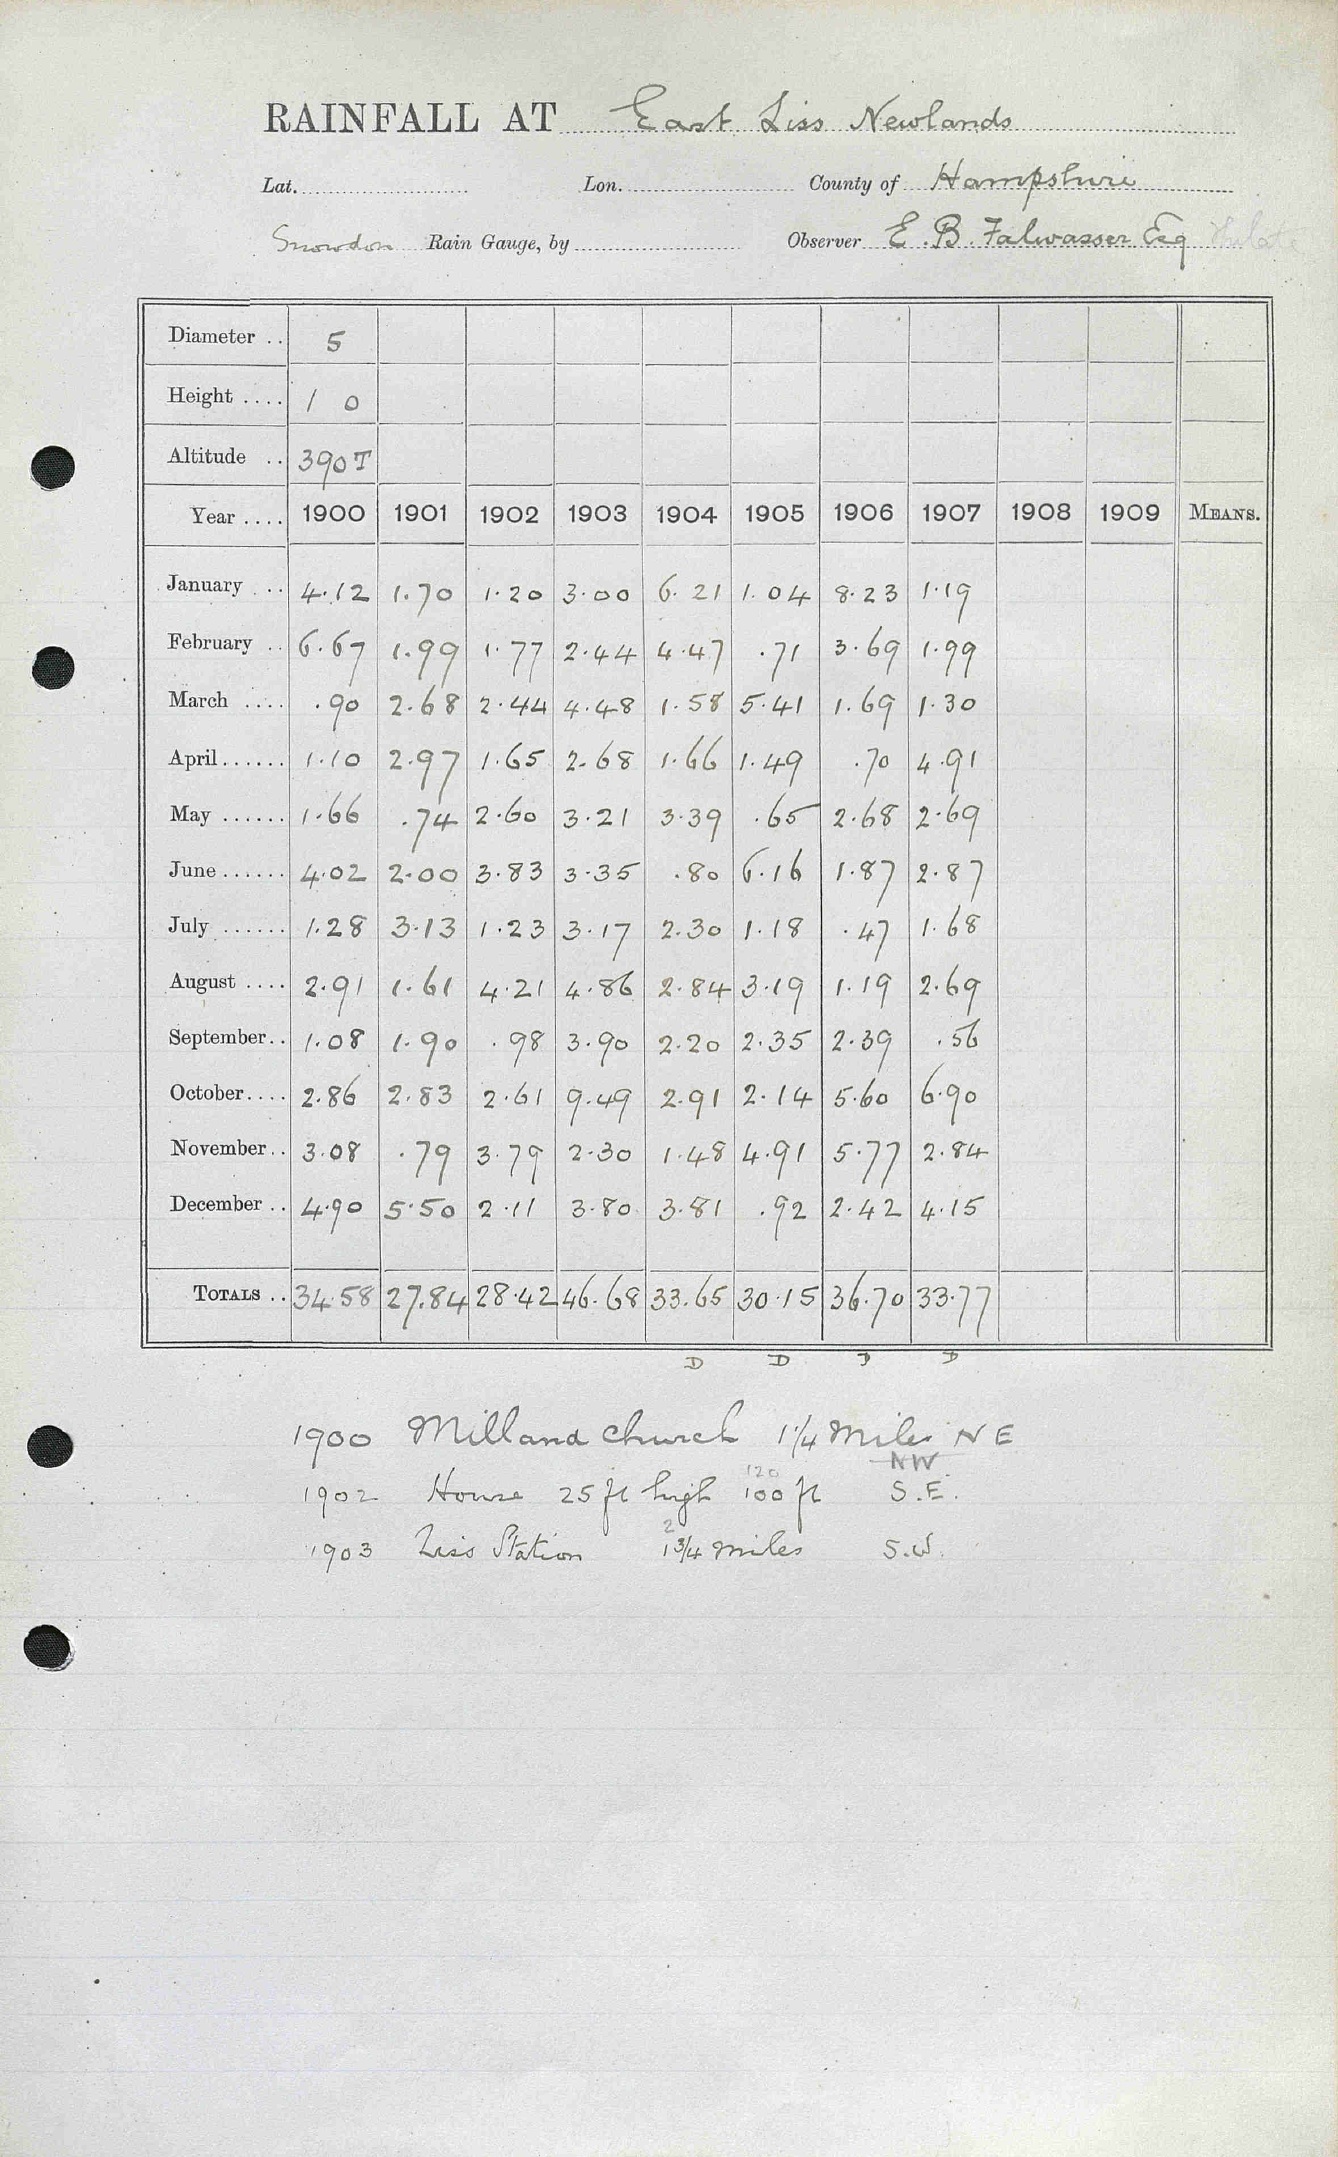 RAINFALL AT East Liss Newlands
Lat. Lon. County of Hampshire
Snowdon Rain Gauge, by Observer E. B. Falwasser Esq
Diameter .. 5
Height .... 1 0
Altitude .. 390T
Year .... 1900 1901 1902 1903 1904 1905 1906 1907 1908 1909 MEANS.
January ... 4.12 1.70 1.20 3.00 6.21 1.04 8.23 1.19
February .. 6.67 1.99 1.77 2.44 4.47 .71 3.69 1.99
March .... .90 2.68 2.44 4.48 1.58 5.41 1.69 1.30
April...... 1.10 2.97 1.65 2.68 1.66 1.49 .70 4.91
May ...... 1.66 .74 2.60 3.21 3.39 .65 2.68 2.69
June...... 4.02 2.00 3.83 3.35 .80 6.16 1.87 2.87
July ...... 1.28 3.13 1.23 3.17 2.30 1.18 .47 1.68
August .... 2.91 1.61 4.21 4.86 2.84 3.19 1.19 2.69
September.. 1.08 1.90 .98 3.90 2.20 2.35 2.39 .56
October.... 2.86 2.83 2.61 9.49 2.91 2.14 5.60 6.90
November.. 3.08 .79 3.79 2.30 1.48 4.91 5.77 2.84
December .. 4.90 5.50 2.11 3.80 3.81 .92 2.42 4.15
TOTALS .. 34.58 27.84 28.42 46.68 33.65 30.15 36.70 33.77
D D D D
1900 Milland Church 1 1/4 Miles NE
NW
120
1902 House 25 ft high 100 ft S.E.
2
1903 Liss Station 1 3/4 miles S.W.